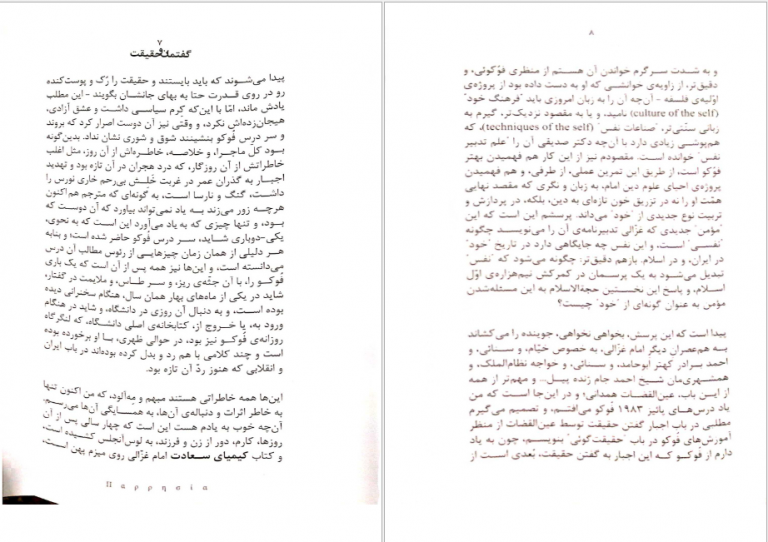 ۷
گفتمان حقیقت
پیدا می‌شوند که باید بایستند و حقیقت را رُک و پوست‌کنده
رو در روی قدرت حتا به بهای جانشان بگویند - این مطلب
یادش ماند، امّا با این‌که کِرم سیاسی داشت و عشق آزادی،
هیجان‌زده‌اش نکرد، و وقتی نیز آن دوست اصرار کرد که بروند
و سر درس فوکو بنشینند شوق و شوری نشان نداد. بدین‌گونه
بود کل ماجرا، و خلاصه، خاطره‌اش از آن روز، مثل اغلب
خاطراتش از آن روزگار، که درد هجران در آن تازه بود و تهدید
اجبار به گذران عمر در غربت خَلِش بی‌رحم خاری نورس را
داشت، گنگ و نارسا است، به گونه‌ای که مترجم هم‌اکنون
هرچه زور می‌زند به یاد نمی‌تواند بیاورد که آن دوست که
بود، و تنها چیزی که به یاد می‌آورد این است که به نحوی،
یکی-دوباری شاید، سر درس فوکو حاضر شده است؛ و بنا به
هر دلیلی از همان زمان چیزهایی از رئوس مطالب آن درس
می‌دانسته است، و این‌ها نیز همه پس از آن است که یک باری
فوکو را، با آن جثّه‌ی ریز، و سر طاس، و ملایمت در گفتار،
شاید در یکی از ماه‌های بهار همان سال، هنگام سخنرانی دیده
بوده است، و به دنبال آن روزی در دانشگاه، و شاید در هنگام
ورود به، یا خروج از، کتابخانه‌ی اصلی دانشگاه، که لنگرگاه
روزانه‌ی فوکو نیز بود، در حوالی ظهری، با او برخورده بوده
است و چند کلامی با هم رد و بدل کرده بوده‌اند در باب ایران
و انقلابی که هنوز ردّ آن تازه بود.
این‌ها همه خاطراتی هستند مبهم و مِه‌آلود، که من اکنون تنها
به خاطر اثرات و دنباله‌ی آن‌ها، به همسایگی آن‌ها می‌رسم.
آن‌چه خوب به یادم هست این است که چهار سالی پس از آن
روزها، کارم، دور از زن و فرزند، به لوس‌آنجلس کشیده است،
و کتاب کیمیای سعادت امام غزّالی روی میزم پهن است،
Π α ρ ρ η σ ί α
۸
و به شدت سرگرم خواندن آن هستم از منظری فوکوئی، و
دقیق‌تر، از زاویه‌ی خوانشی که او به دست داده بود از پروژه‌ی
اوّلیه‌ی فلسفه - آن‌چه آن را به زبان امروزی باید "فرهنگ خود"
(culture of the self) نامید، و یا به مقصود نزدیک‌تر، گیرم به
زبانی سنّتی‌تر، "صناعات نفس" (techniques of the self)، که
هم‌پوشی زیادی دارد با آن‌چه دکتر صدیقی آن را "علم تدبیر
نفس" خوانده است. مقصودم نیز از این کار هم فهمیدن بهتر
فوکو است، از طریق این تمرین عملی، از طرفی، و هم فهمیدن
پروژه‌ی احیای علوم دین امام، به زبان و نگری که مقصد نهایی
همّت او را نه در تزریق خون تازه‌ای به دین، بلکه، در پردازش و
تربیت نوع جدیدی از "خود" می‌داند. پرسشم این است که این
"مؤمن" جدیدی که غزّالی تدبیرنامه‌ی آن را می‌نویسد چگونه
"نفسی" است، و این نفس چه جایگاهی دارد در تاریخ "خود"
در ایران، و در اسلام. بازهم دقیق‌تر: چگونه می‌شود که "نفس"
تبدیل می‌شود به یک پرسمان در کمرکش نیم‌هزاره‌ی اوّل
اسلام، و پاسخ این نخستین حجةالاسلام به این مسئله‌شدن
مؤمن به عنوان گونه‌ای از "خود" چیست؟
پیدا است که این پرسش، بخواهی نخواهی، جوینده را می‌کشاند
به هم‌عصران دیگر امام غزّالی، به خصوص خیّام، و سنائی، و
احمد برادر کهتر ابوحامد، و سنائی، و خواجه نظام‌الملک، و
همشهری‌مان شیخ احمد جام ژنده پیل... و مهم‌تر از همه
از این باب، عین‌القضات همدانی؛ و در این‌جا است که من
یاد درس‌های پائیز ۱۹۸۳ فوکو می‌افتم، و تصمیم می‌گیرم
مطلبی در باب اجبار گفتن حقیقت توسط عین‌القضات از منظر
آموزش‌های فوکو در باب "حقیقت‌گوئی" بنویسم، چون به یاد
دارم از فوکو که این اجبار به گفتن حقیقت، بُعدی است از